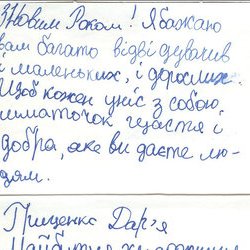 З Новим Роком! Я бажаю
вам багато відвідувачів
і маленьких, і дорослих.
Щоб кожен уніс з собою
шматочок щастя і
добра, яке ви даєте лю-
дям.
Грищенко Дар'я